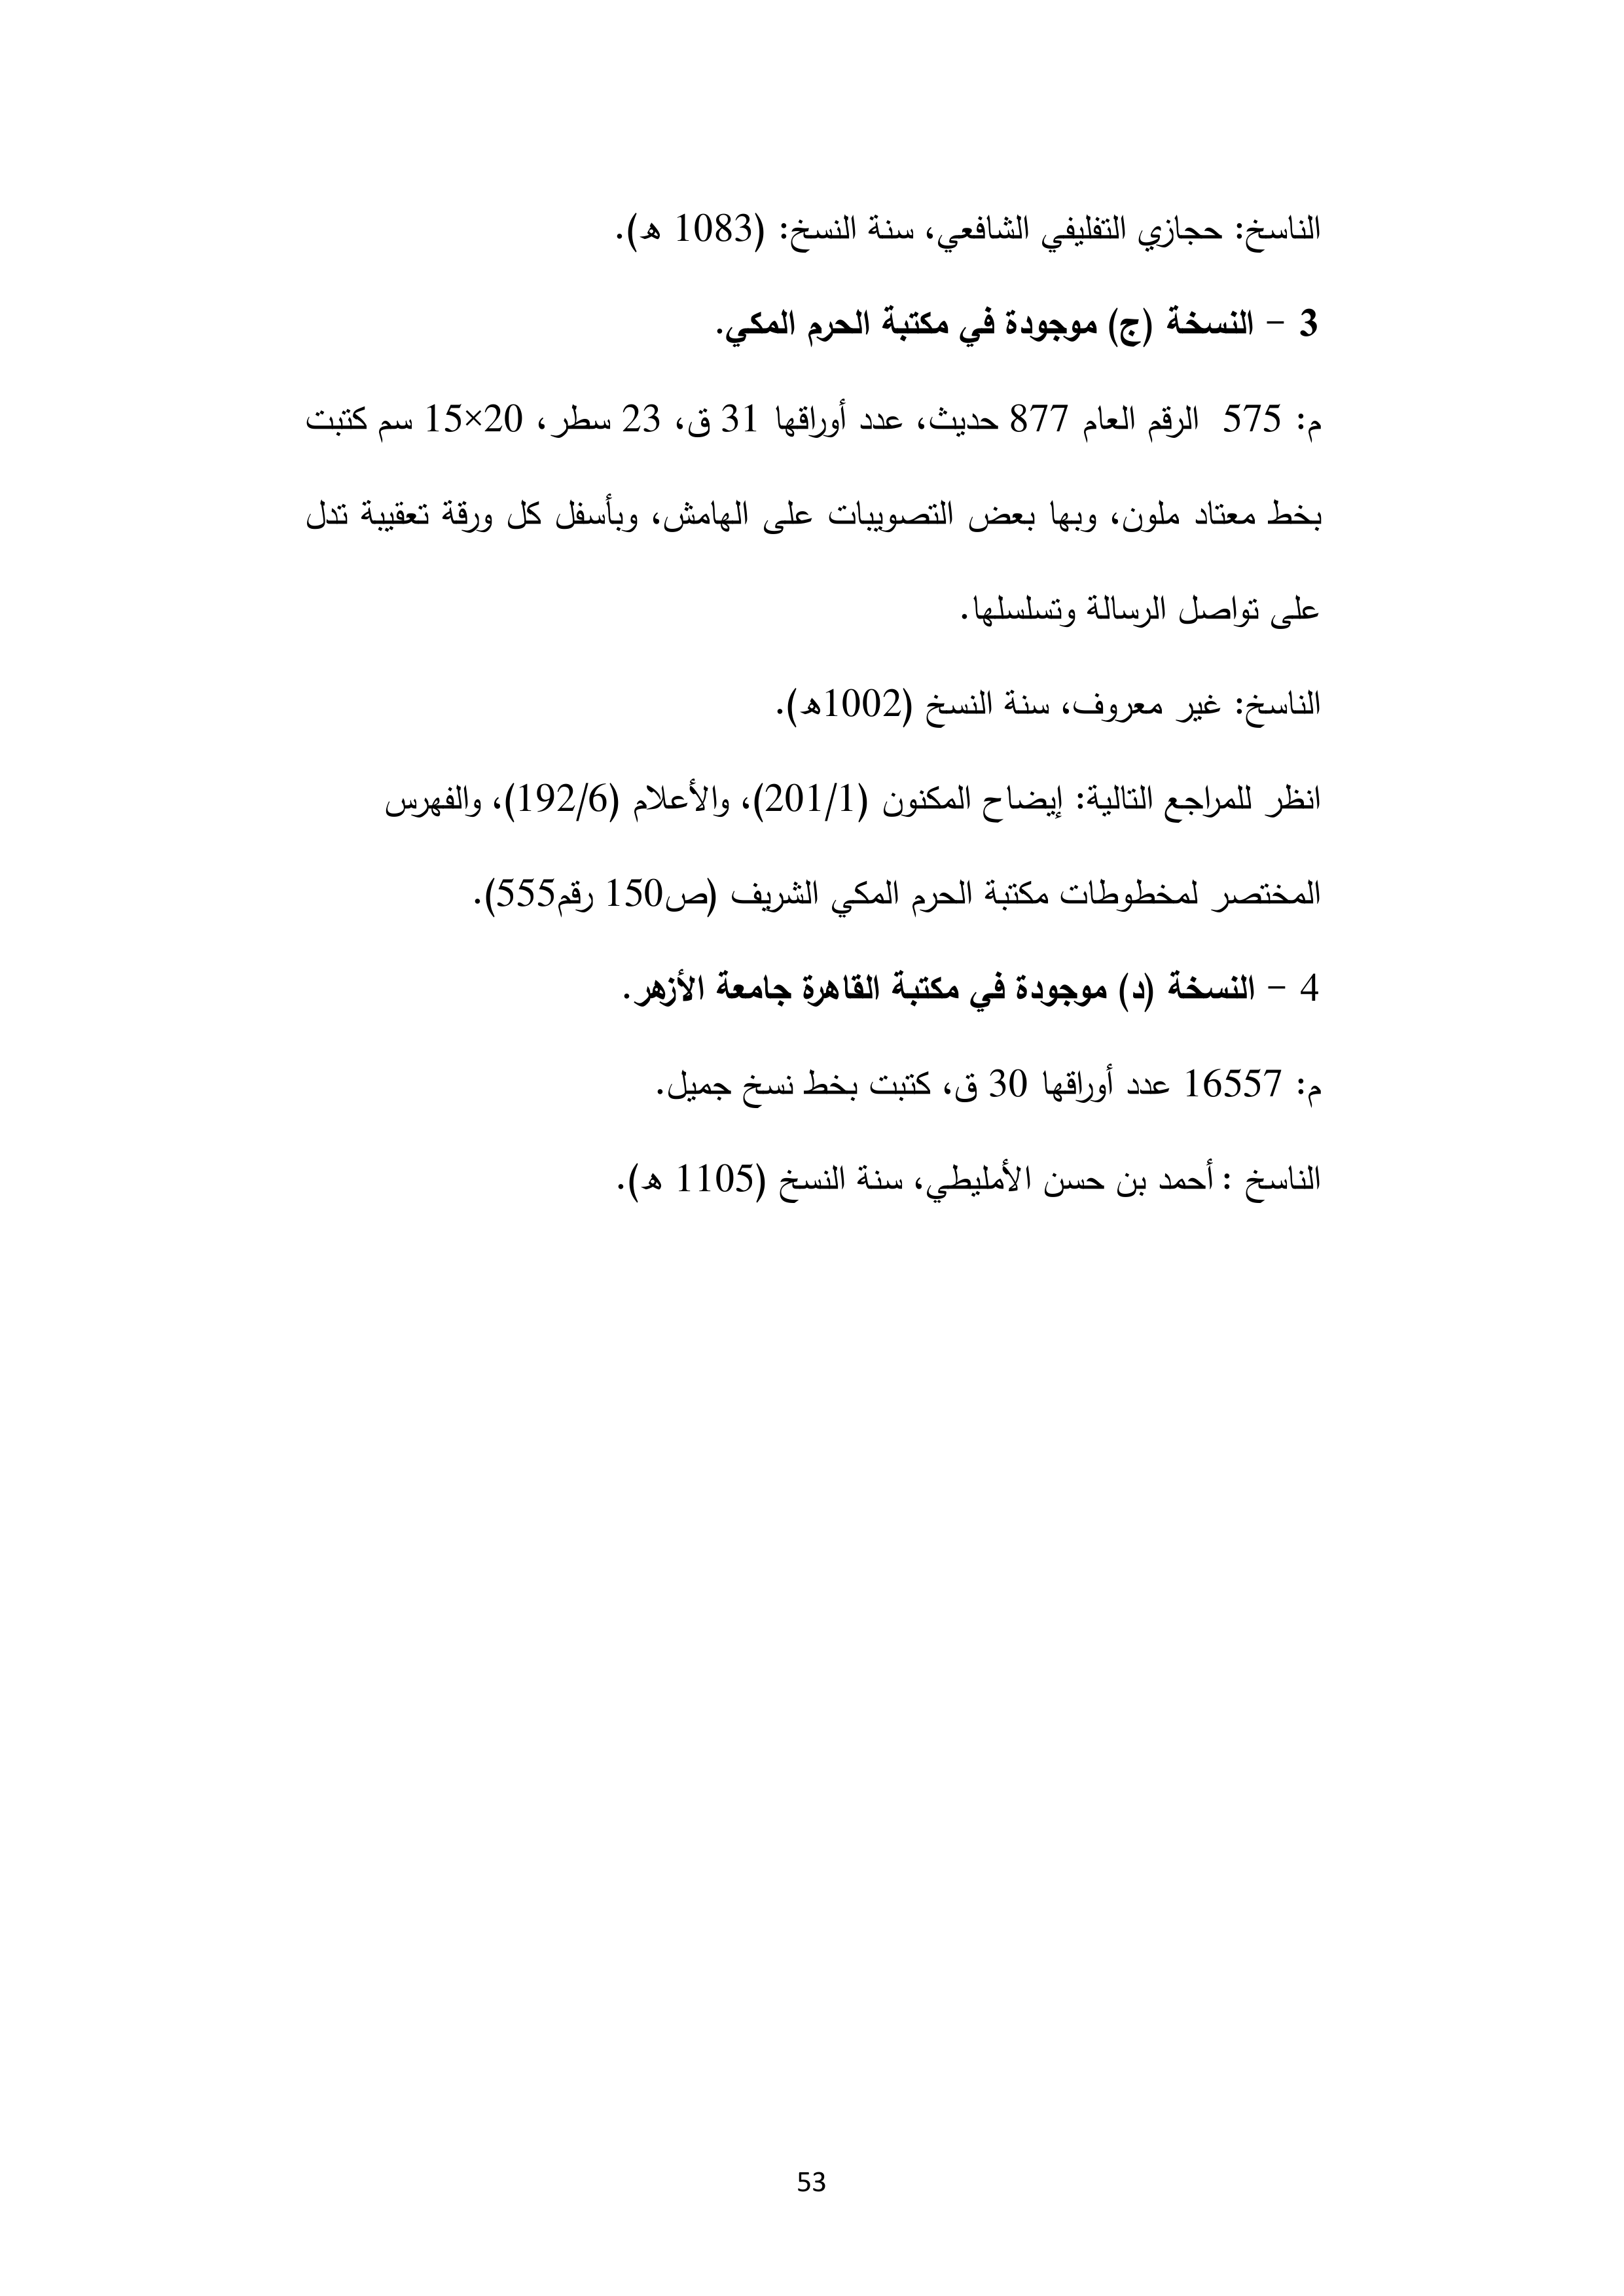 الناسخ: حجازي التفليفي الشافعي، سنة النسخ: (1083 ه).
3 – النسخة (ج) موجودة في مكتبة الحرم المكي.
م: 575 الرقم العام 877 حديث، عدد أوراقها 31 ق، 23 سطر، 20×15 سم كتبت
بخط معتاد ملون، وبها بعض التصويبات على الهامش، وبأسفل كل ورقة تعقيبة تدل
على تواصل الرسالة وتسلسلها.
الناسخ: غير معروف، سنة النسخ (1002ه).
انظر للمراجع التالية: إيضاح المكنون (201/1)، والأعلام (192/6)، والفهرس
المختصر لمخطوطات مكتبة الحرم المكي الشريف (ص150 رقم555).
4 – النسخة (د) موجودة في مكتبة القاهرة جامعة الأزهر.
م: 16557 عدد أوراقها 30 ق، كتبت بخط نسخ جميل.
الناسخ : أحمد بن حسن الأمليطي، سنة النسخ (1105 ه).
53